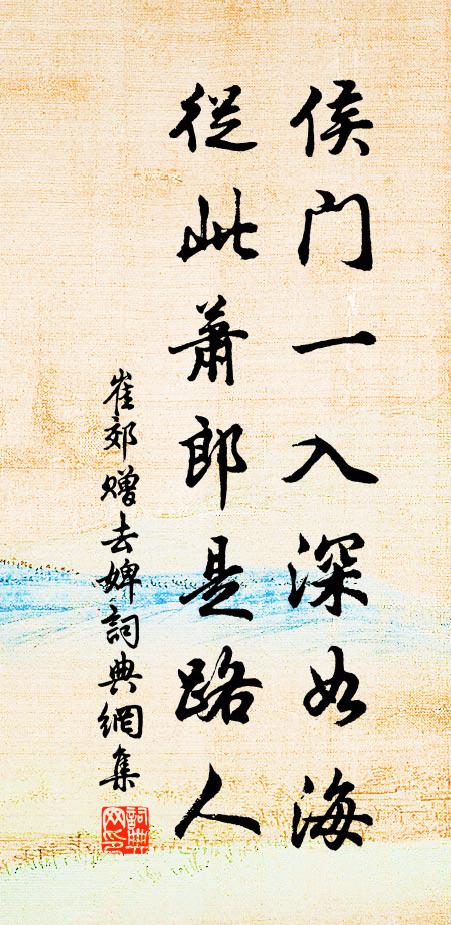 侯門一入深如海
從此蕭郎是路人
崔郊贈去婢詞典網集
詞典网印